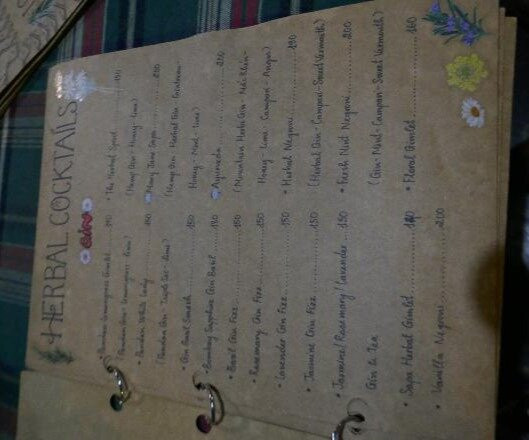 HERBAL COCKTAILS
• Bamboo Lemongrass Gimlet 190
(Bamboo Gin - Lemongrass - Lime)
• Bamboo White Lady 180
(Bamboo Gin - Triple Sec - Lime)
• Gin Basil Smash 150
• Bombay Sapphire Gin Basil 180
• Basil Gin Fizz 150
• Rosemary Gin Fizz 150
• Lavender Gin Fizz 150
• Jasmine Gin Fizz 150
• Jasmine / Rosemary / Lavender 150
Gin & Tea
• Sapa Herbal Gimlet
• Vanilla Negroni 200
• The Herbal Spirit 190
(Hemp Gin - Honey - Lime)
• Mary Jane Sapa 200
(Hemp Gin - Herbal Gin -
Honey - Mint - Lime)
• Ayurveda 200
(Mountain Herbs Gin -
Honey - Lime - Campari - )
• Herbal Negroni 190
(Herbal Gin - Campari - Sweet Vermouth)
• Fresh Mint Negroni 200
(Gin - Mint - Campari - Sweet Vermouth)
• Floral Gimlet 160